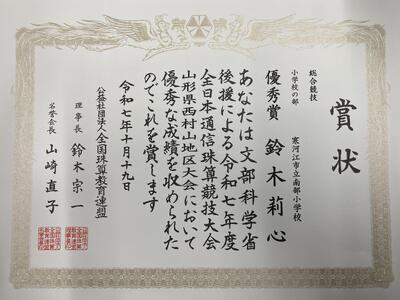 賞状
総合競技
小学校の部
寒河江市立南部小学校
優秀賞 鈴木莉心
あなたは文部科学省
後援による令和七年度
全日本通信珠算競技大会
山形県西村山地区大会において
優秀な成績を収められた
のでこれを賞します
令和七年十月十九日
公益社団法人全国珠算教育連盟
理事長 鈴木宗一
名誉会長 山崎直子